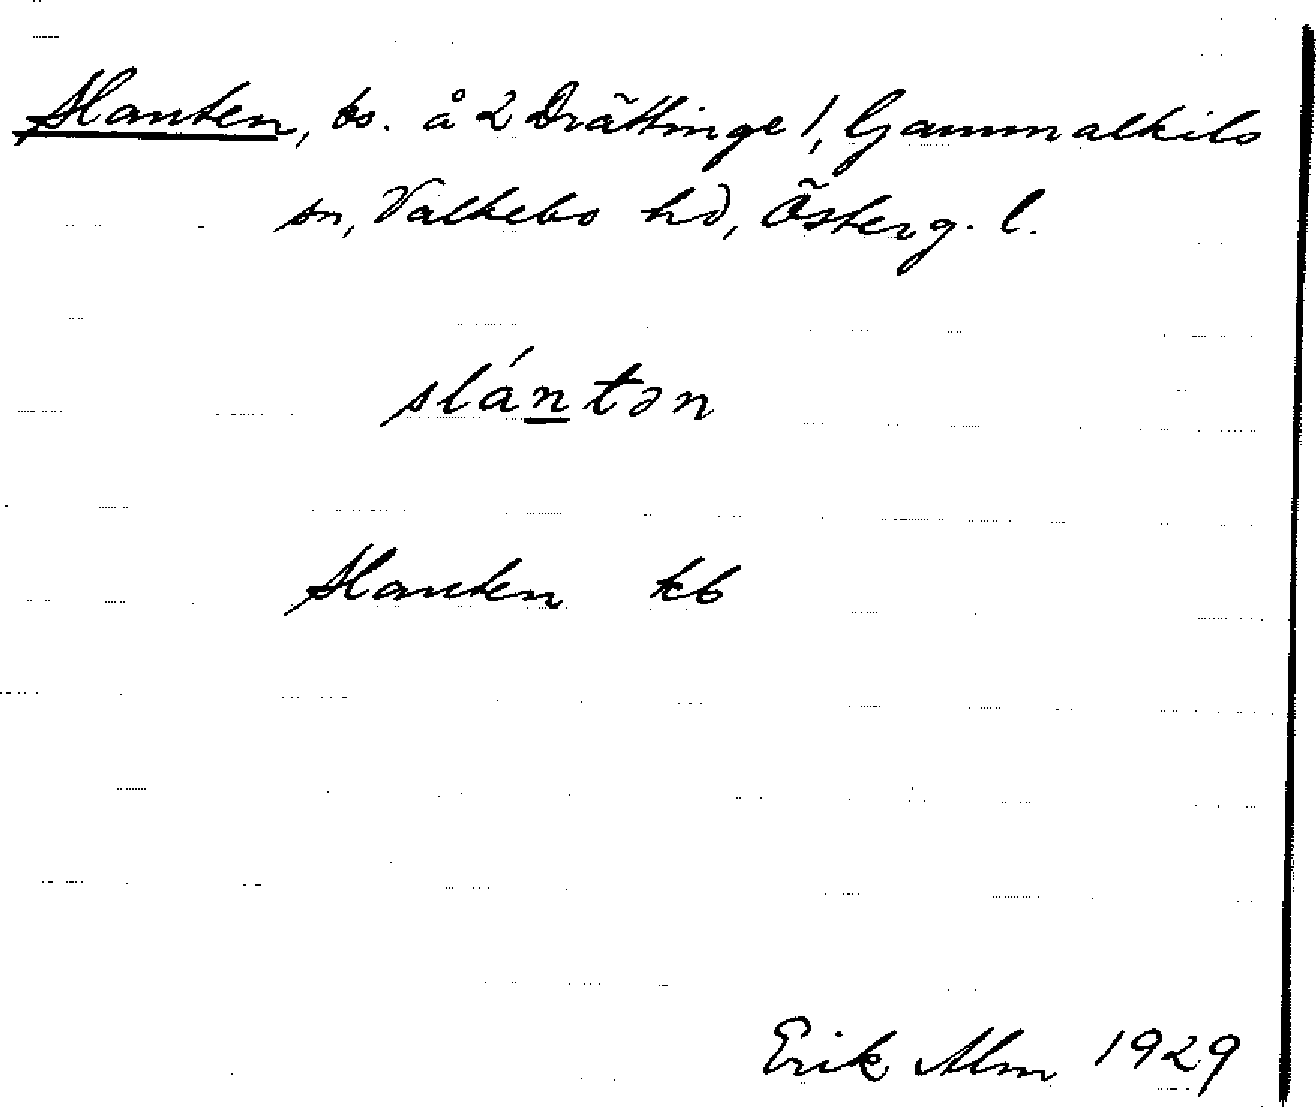 Slanten, bs. å 2 Drättinge 1, Gammalkils
sn, Valkebo hd, Österg. l.
slántən
Slanten kb
Erik Alm 1929